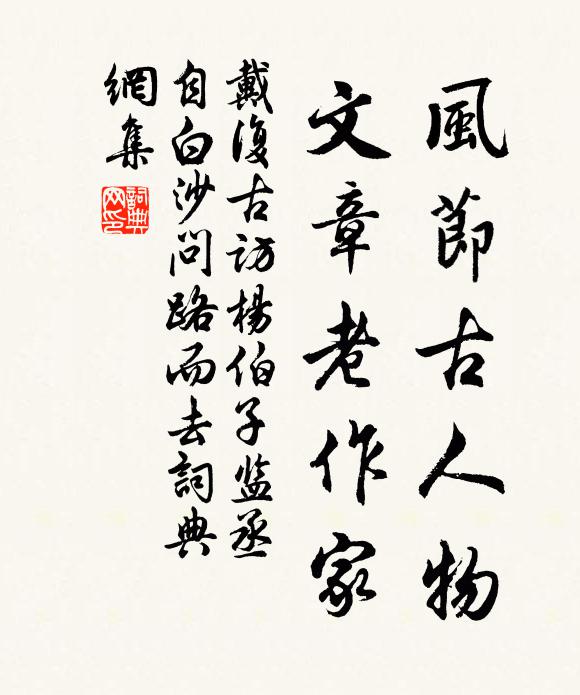 風節古人物
文章老作家
戴復古訪楊伯子监丞
自白沙问路而去詞典
網集
詞典
网印